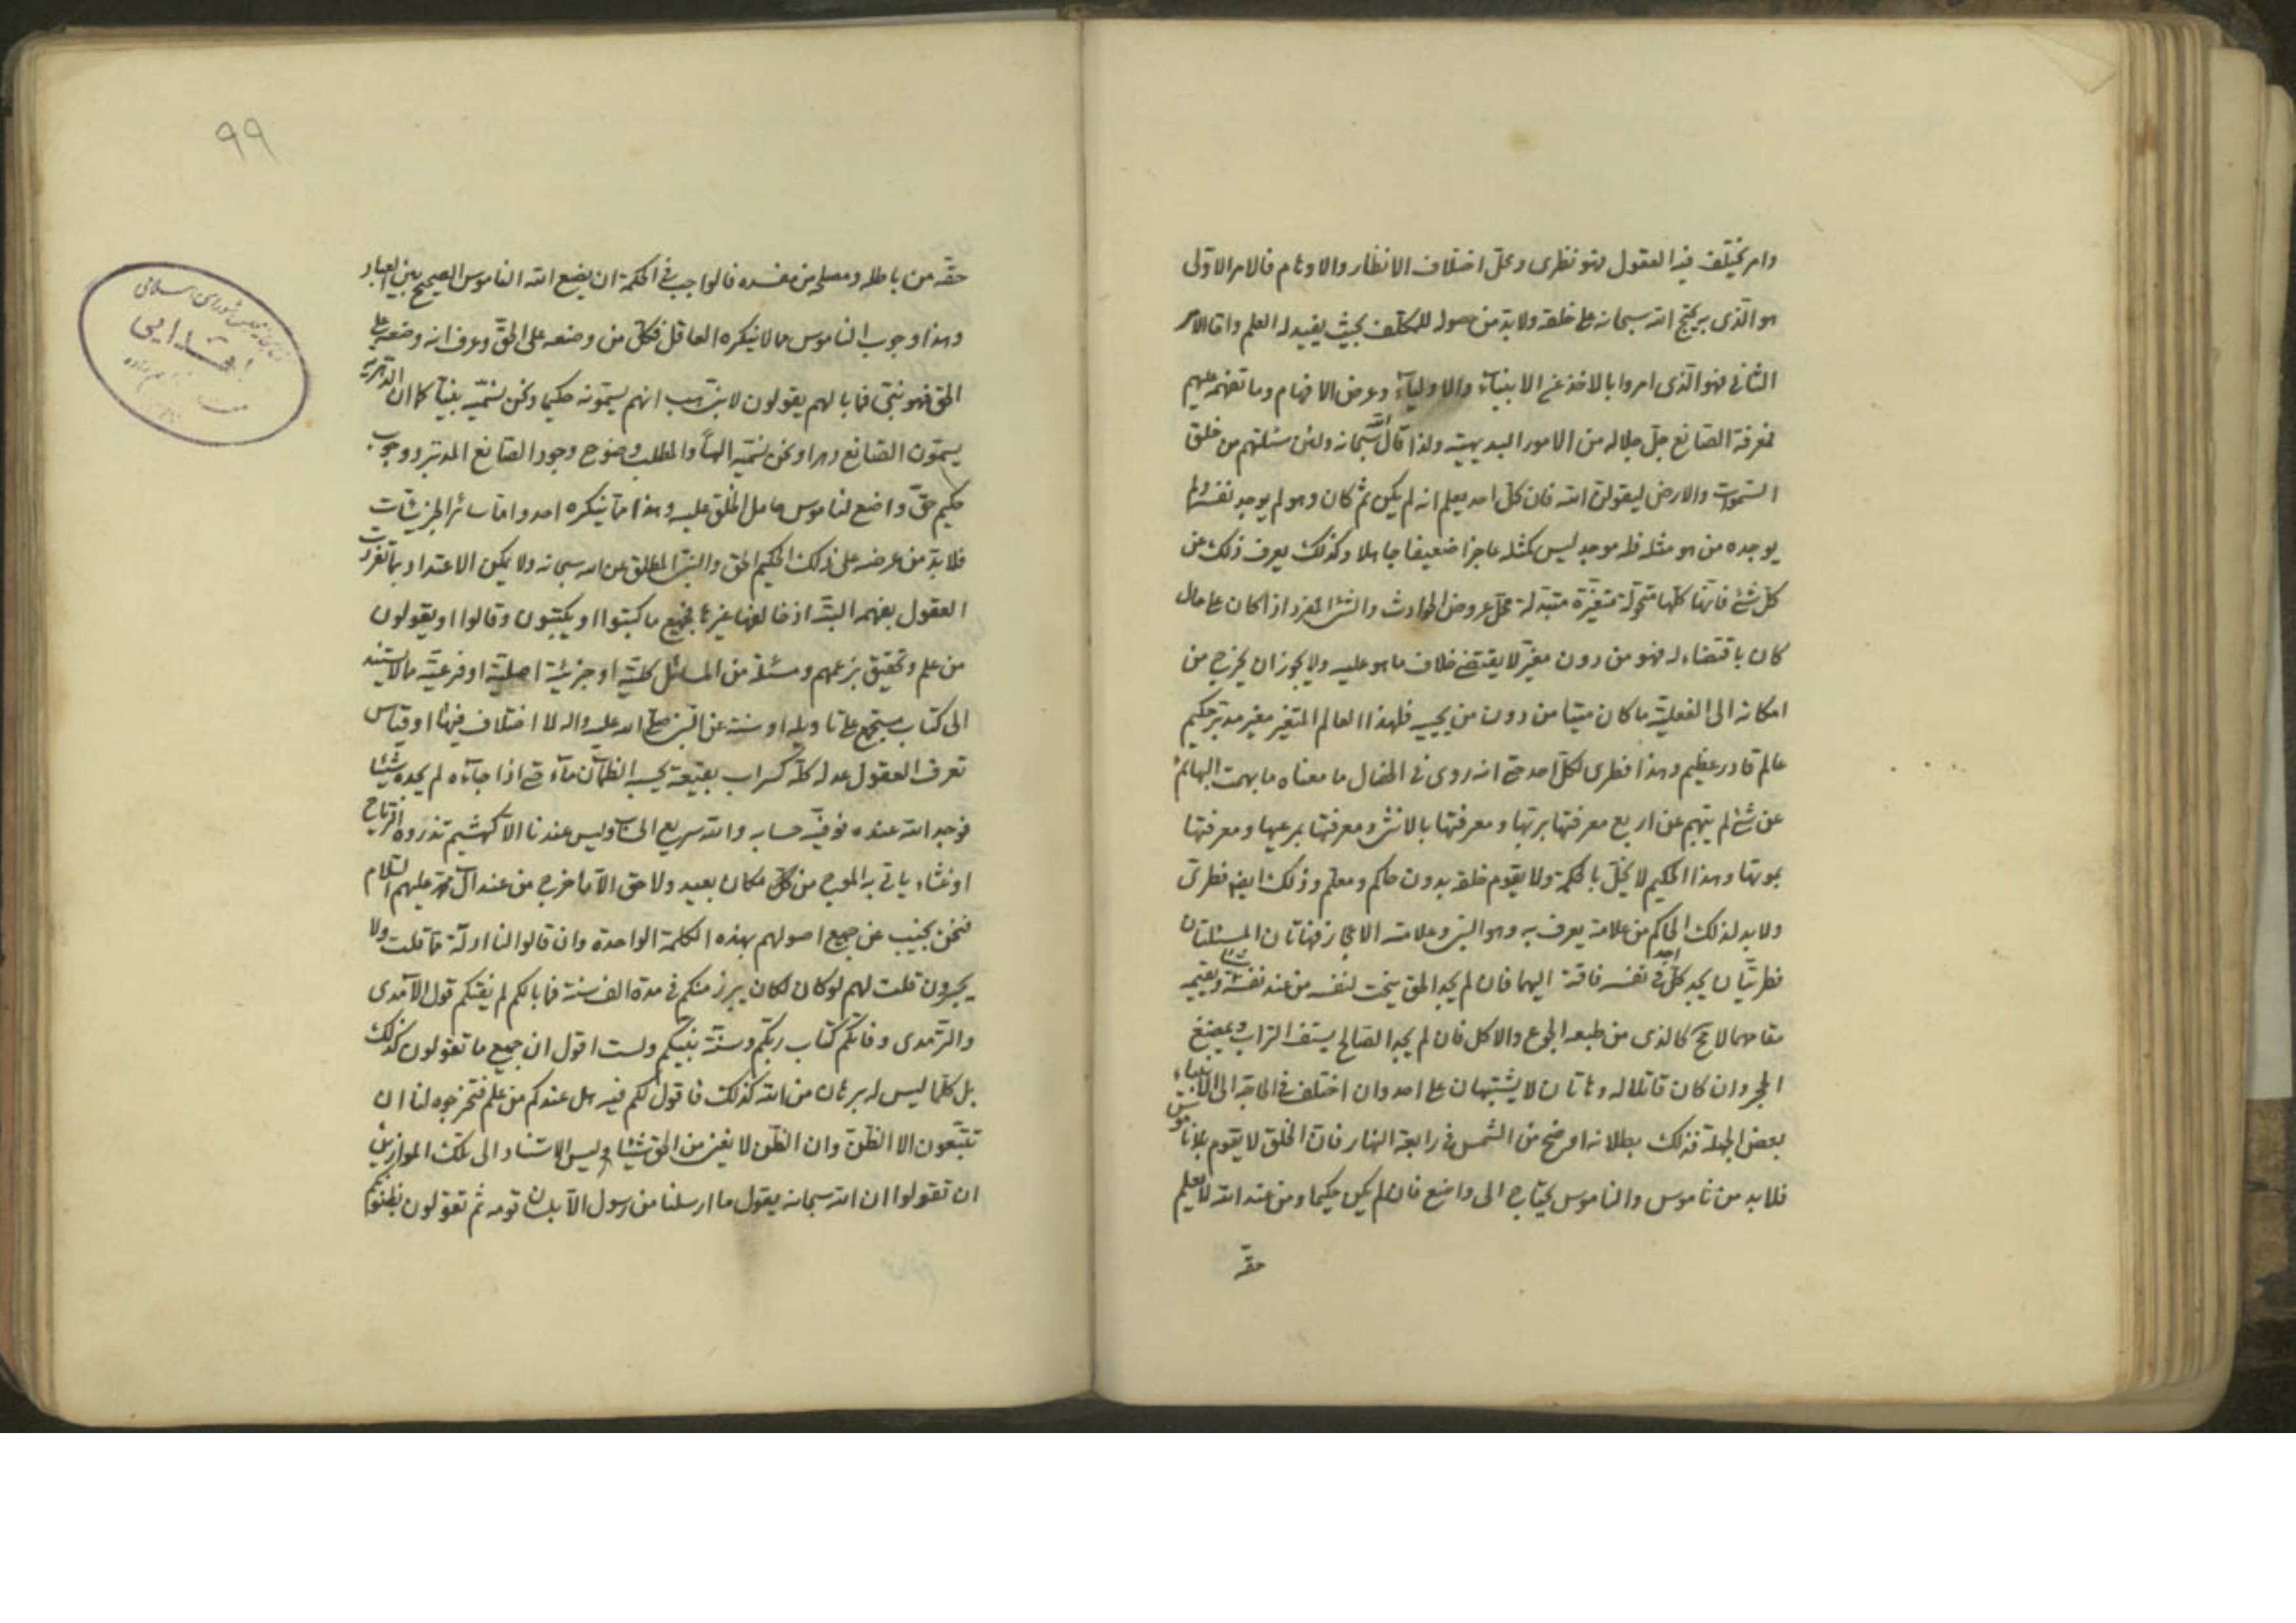 وامر يختلف فيه العقول فهو نظرى ومحل اختلاف الانظار والاوهام فالامر الاولى
هو الذى به يحتج الله سبحانه على خلقه ولابد من حصوله للمكلف بحيث يفيد له العلم واما الامر
الثانى فهو الذى امروا بالاخذ عن الانبياء والاولياء وعرض الافهام وما تفهمه عليهم
فمعرفة الصانع جل جلاله من الامور البديهية ولذا قال الله سبحانه ولئن سئلتهم من خلق
السموات والارض ليقولن الله فان كل احد يعلم انه لم يكن ثم كان وهو لم يوجد نفسه ولم
يوجده من هو مثله فله موجد ليس كمثله عاجزا ضعيفا جاهلا وكذلك يعرف ذلك من
كل شئ فانها كلها متحولة متغيرة متبدلة محل عروض الحوادث والشئ المفرد اذا كان على حال
كان باقتضاء له فهو من دون مغير لا يقتضى خلاف ما هو عليه ولا يجوز ان يخرج من
امكانه الى الفعلية ما كان ميتا من دون من يحييه فلهذا العالم المتغير مغير مدبر حكيم
عالم قادر عظيم وهذا فطرى لكل احد حتى انه روى فى الاطفال ما معناه ما بهمت البهائم
عن شئ لم يتهم عن اربع معرفتها بربها ومعرفتها بالانثى ومعرفتها بمرعيها ومعرفتها
بموتها وهذا الحكيم لا يخل بالحكمة ولا يقوم خلقه بدون حاكم ومعلم وذلك ايضا فطرى
ولابد لذلك الحاكم من علامة يعرف به وهو النبى وعلامته الاعجاز فهاتان المسئلتان
فطريتان يجد كل احد فى نفسه فاقة اليهما فان لم يجد الحق ينحت لنفسه من عند نفسه ويقيمه
مقامهما لامحة كالذى من طبعه الجوع والاكل فان لم يجد الصالح يستف التراب ويمضغ
الحجر وان كان قاتلا له وهاتان لا يشتبهان على احد وان اختلف فى الحاجة الى الانبياء
بعض الجهلة فذلك بطلانه اوضح من الشمس فى رابعة النهار فان الخلق لا يقوم بلا ناموس
فلابد من ناموس والناموس يحتاج الى واضع فان لم يكن حكيما ومن عند الله لا يعلم
حقه
٩٩
حقه من باطله ومصلحه من مفسده فالواجب فى الحكمة ان يضع الله الناموس الصحيح بين العباد
وهذا وجوب الناموس مما لا ينكره العاقل فكل من وضعه على الحق وعرف انه وضعه على
الحق فهو نبى فما بالهم يقولون لا نبى هب انهم يسمونه حكيما ونحن نسميه نبيا كما ان الدهرية
يسمون الصانع دهرا ونحن نسميه الها والمطلب وضوح وجود الصانع المدبر ووجوب
حكيم حق واضع لناموس حامل الخلق عليه وهذا مما ينكره احد واما سائر الجزئيات
فلابد من عرضه على ذلك الحكيم الحق والنبى المطلق عن الله سبحانه ولا يمكن الاعتداد بما تفردت
العقول بفهمه البتة اذ خالفها غيرها فجميع ما كتبوا او يكتبون وقالوا او يقولون
من علم وتحقيق بزعمهم ومسئلة من المسائل كلية او جزئية اصلية او فرعية ما لا يستند
الى كتاب مستجمع على تاويله او سنة عن النبى صلى الله عليه واله لا اختلاف فيها او قياس
تعرف العقول عدله كله كسراب بقيعة يحسبه الظمآن ماء حتى اذا جاءه لم يجده شيئا
فوجد الله عنده فوفيه حسابه والله سريع الحساب وليس عندنا الا كهشيم تذروه الرياح
او غثاء ياتى به الموج من كل مكان بعيد ولا حق الا ما خرج من عند آل محمد عليهم السلام
فنحن نجيب عن جميع اصولهم بهذه الكلمة الواحدة وان قالوا لنا ادلة مما قلت ولا
يجسرون قلت لهم لو كان لكان يبرز منكم فى مدة الف سنة فما بالكم لم يفتكم قول الآمدى
والترمدى وفاتكم كتاب ربكم وسنة نبيكم ولست اقول ان جميع ما تقولون كذلك
بل كلما ليس له برهان من الله كذلك فاقول لكم فيه هل عندكم من علم فتخرجوه لنا ان
تتبعون الا الظن وان الظن لا يغنى من الحق شيئا وليس الاستناد الى تلك الموازين
ان تقولوا ان الله سبحانه يقول ما ارسلنا من رسول الا بلسان قومه ثم تقولون بظنونكم